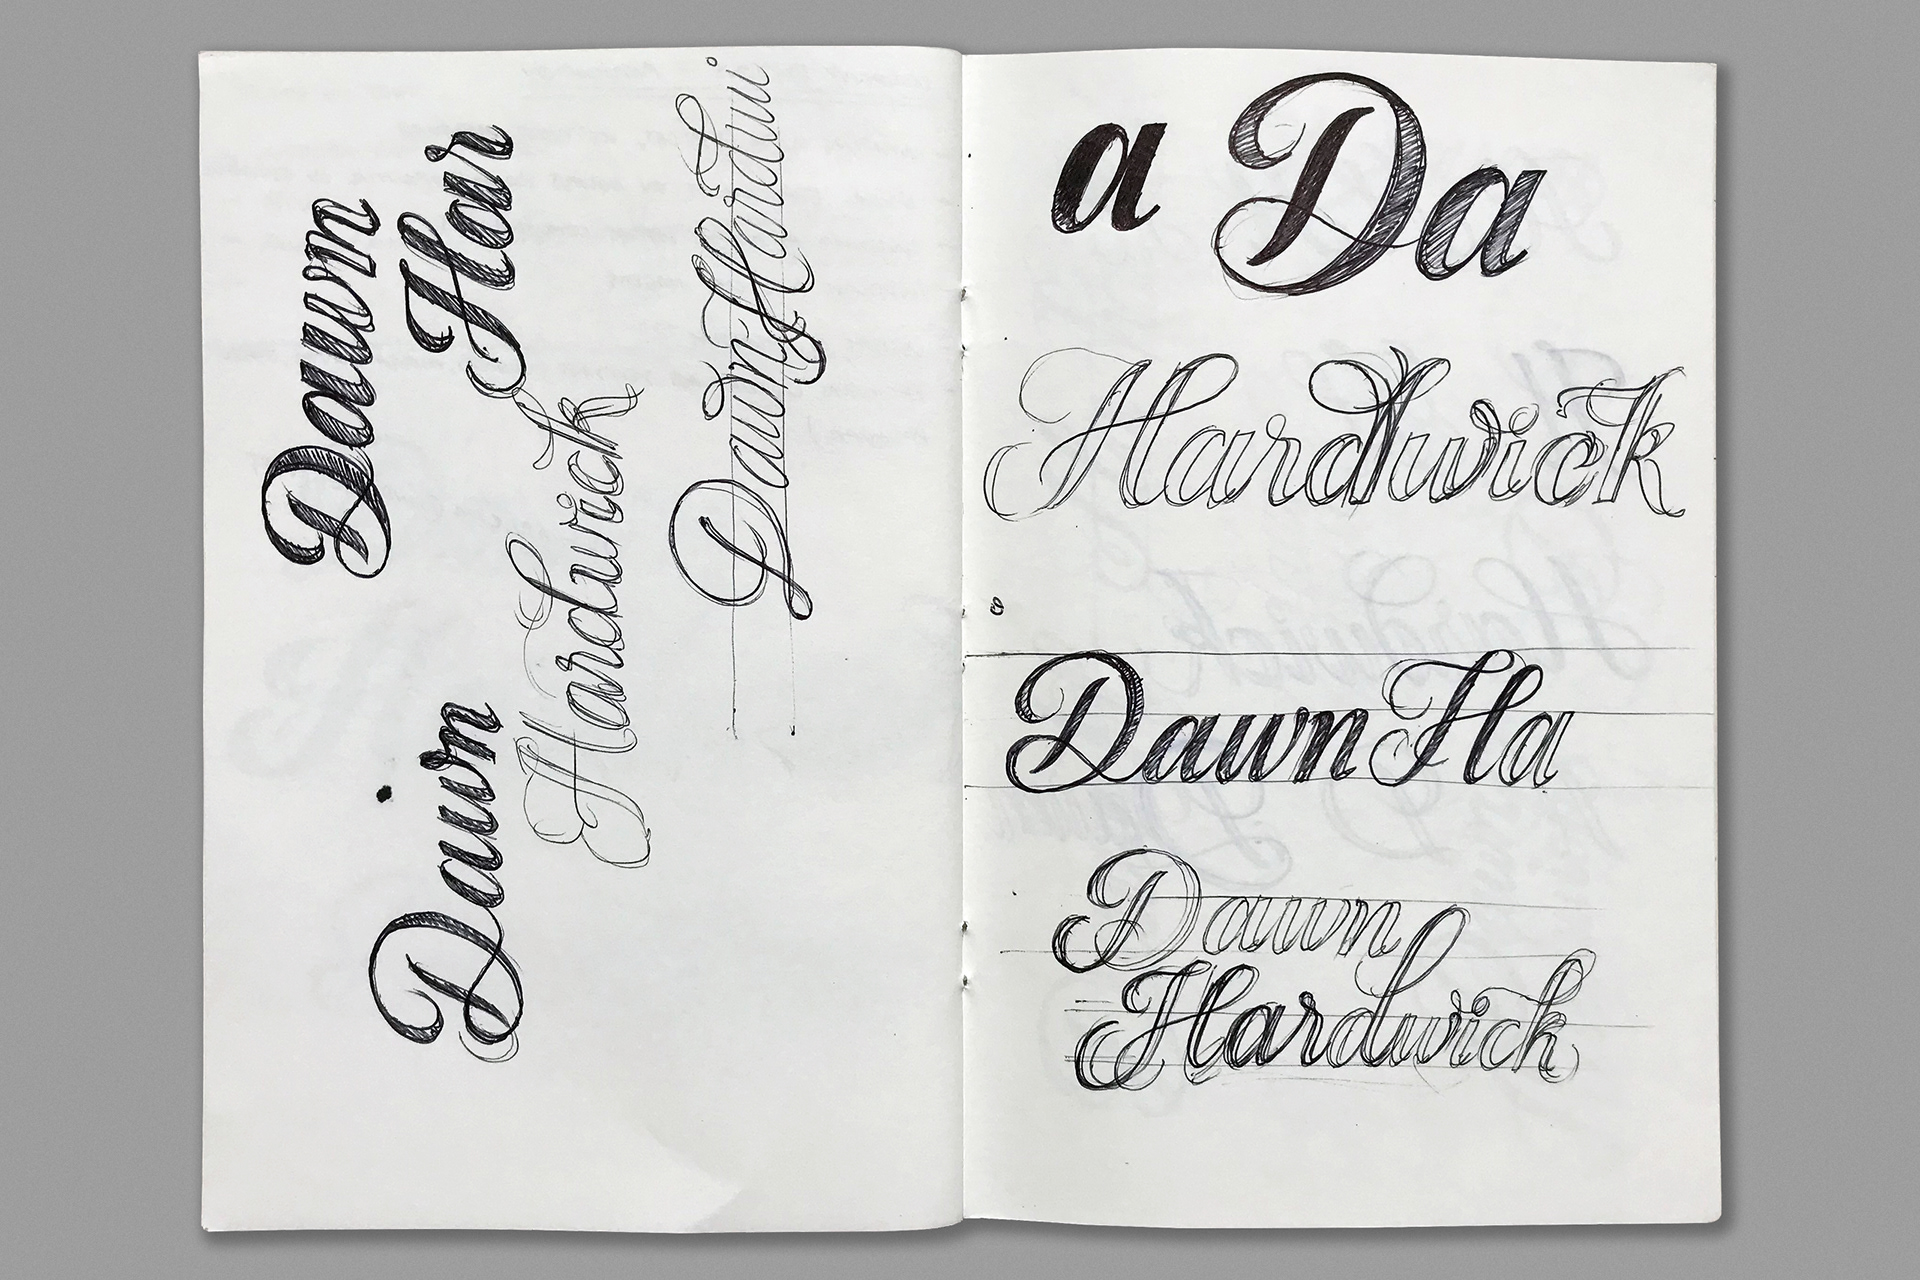 Dawn
Har
Hardwick
Dawn
DawnHardwi
a Da
Hardwick
DawnHa
Dawn
Hardwick